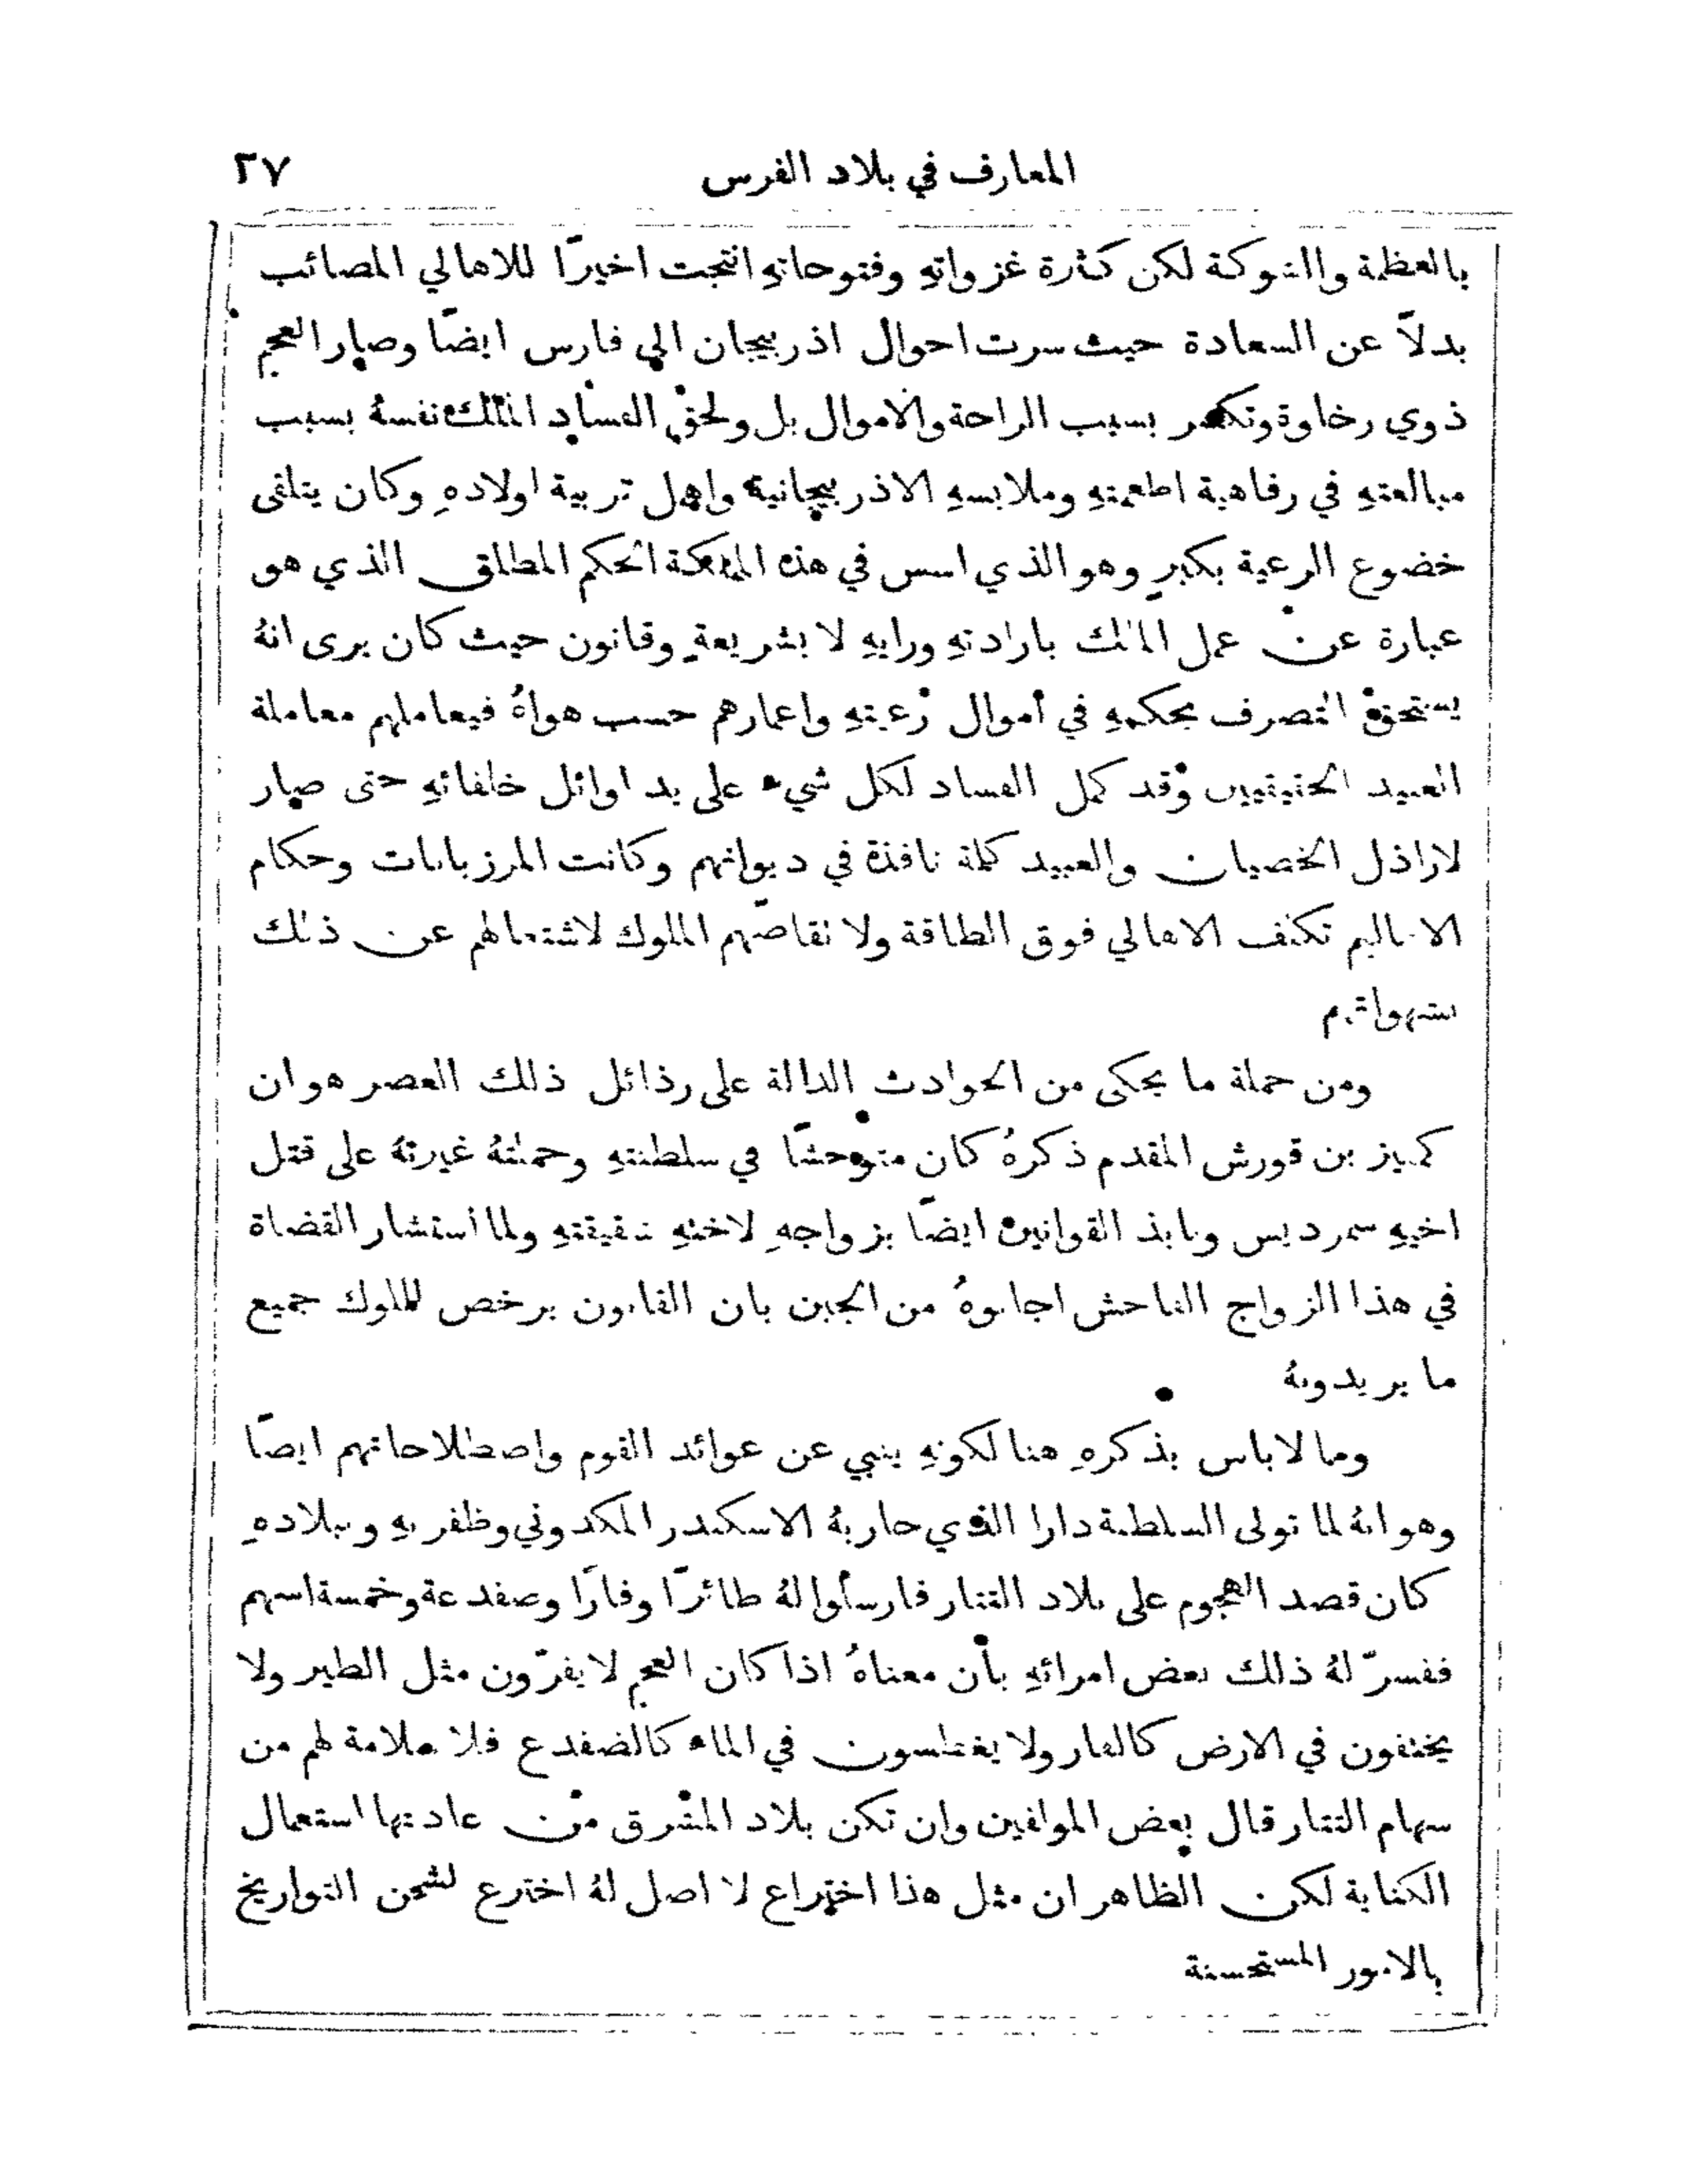 المعارف في بلاد الفرس ٢٧
بالعظمة والشوكة لكن كثرة غزواتهِ وفتوحاتهِ انتجت اخيرًا للاهالي المصائب
بدلًا عن السعادة حيث سرت احوال اذربيجان الي فارس ايضًا وصار العجم
ذوي رخاوة وتكسر بسبب الراحة والاموال بل ولحق الفساد الملك نفسهُ بسبب
مبالغتهِ في رفاهية اطعمتهِ وملابسهِ الاذربيجانية واهمل تربية اولادهِ وكان يتلقى
خضوع الرعية بكبرٍ وهو الذي اسس في هذه المملكة الحكم المطلق الذي هو
عبارة عن عمل الملك بارادتهِ ورايهِ لا بشريعةٍ وقانون حيث كان يرى انهُ
يستحق التصرف بحكمهِ في أموال رعيتهِ واعمارهم حسب هواهُ فيعاملهم معاملة
العبيد الحقيقيين وقد كمل الفساد لكل شيء على يد اوائل خلفائهِ حتى صار
لاراذل الخصيان والعبيد كلمة نافذة في ديوانهم وكانت المرزبانات وحكام
الاقاليم تكلف الاهالي فوق الطاقة ولا تقاصّهم الملوك لاشتغالهم عن ذلك
بشهواتهم
ومن جملة ما يحكى من الحوادث الدالة على رذائل ذلك العصر هو ان
كمبيز بن قورش المقدم ذكرهُ كان متوحشًا في سلطنتهِ وحملتهُ غيرتهُ على قتل
اخيهِ سمرديس ونابذ القوانين ايضًا بزواجهِ لاختهِ شقيقتهِ ولما أستشار القضاة
في هذا الزواج الفاحش اجابوهُ من الجبن بان القانون يرخص للملوك جميع
ما يريدونهُ
وما لا باس بذكرهِ هنا لكونهِ ينبي عن عوائد القوم واصطلاحاتهم ايضًا
وهو انهُ لما تولى السلطنة دارا الذي حاربهُ الاسكندر المكدوني وظفر بهِ وببلادهِ
كان قصد الهجوم على بلاد التتار فارسلوا لهُ طائرًا وفارًا وضفدعة وخمسة اسهم
ففسرّ لهُ ذلك بعض امرائهِ بأن معناهُ اذا كان العجم لا يفرّون مثل الطير ولا
يختفون في الارض كالفار ولا يغطسون في الماء كالضفدع فلا ملامة لهم من
سهام التتار قال بعض الموافين وان تكن بلاد المشرق من عادتها استعمال
الكناية لكن الظاهر ان مثل هذا اختراع لا اصل لهُ اخترع لشحن التواريخ
بالامور المستحسنة